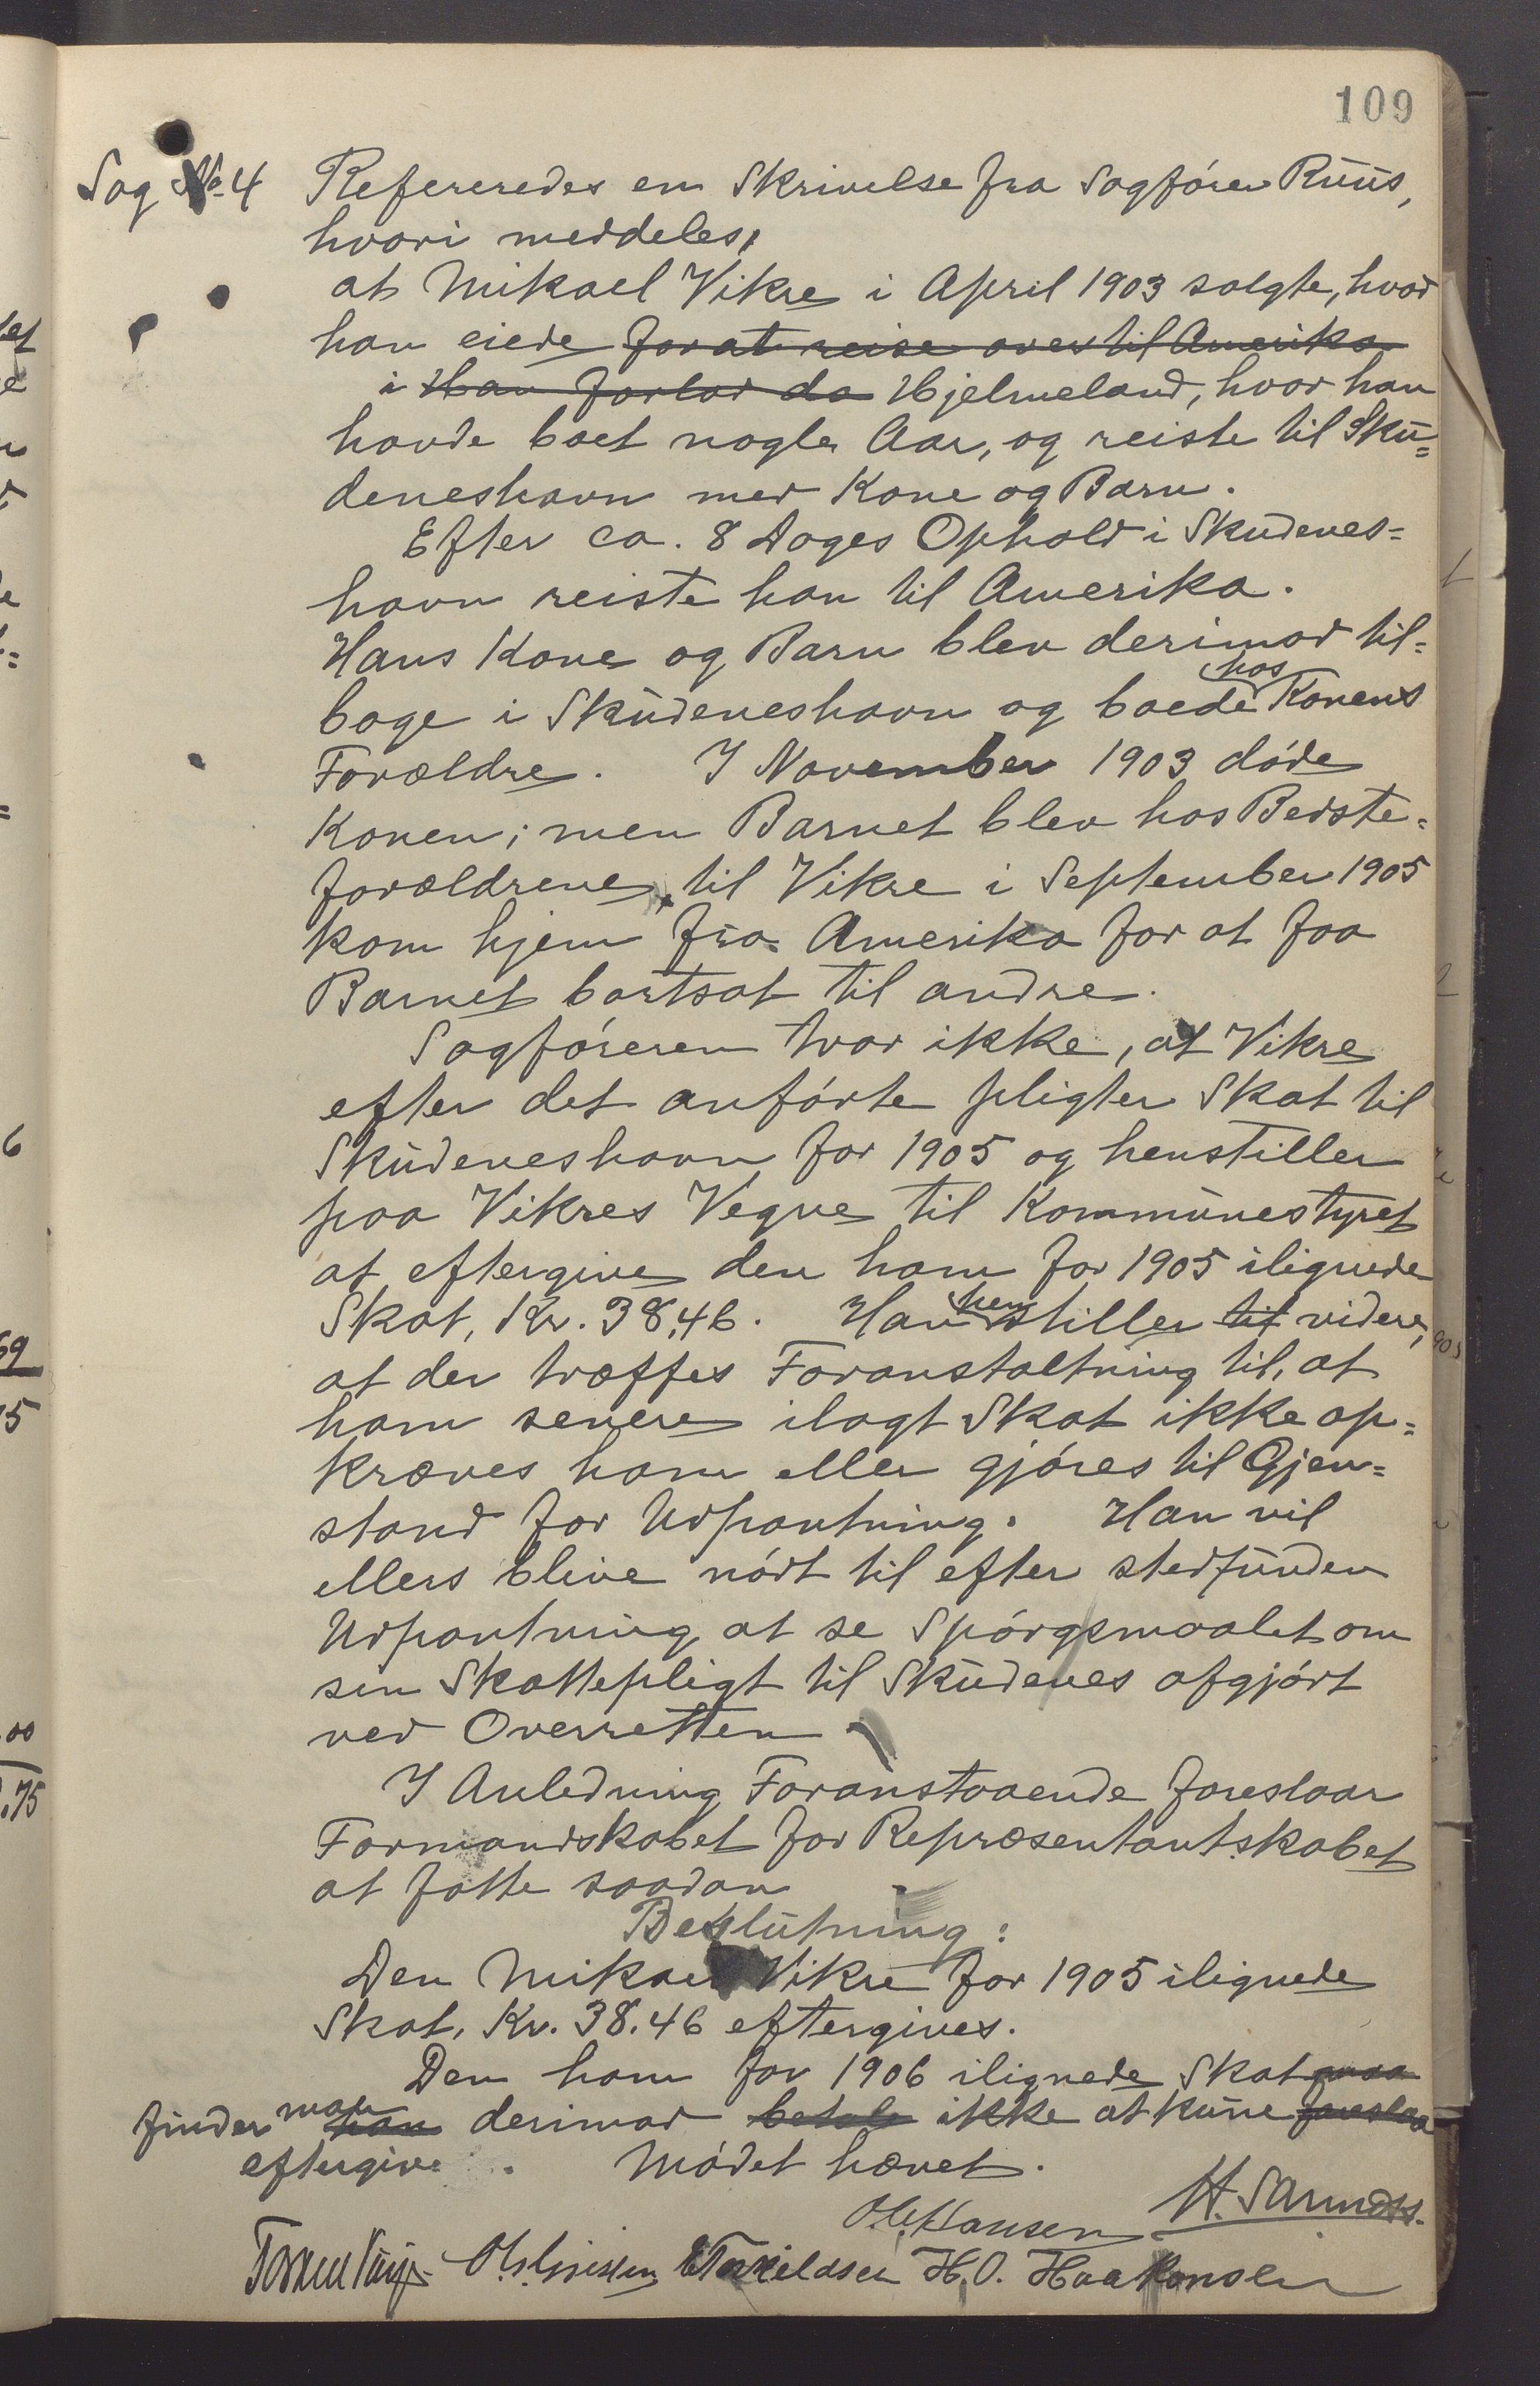 109
Sag No 4 Refereredes en Skrivelse fra Sagfører Ruus,
hvori meddeles,
at Mikael Vikre i April 1903 solgte, hvad
han eiede for at reise over til Amerika
i Han forlod da Hjelmeland, hvor han
havde boet nogle Aar, og reiste til Sku=
deneshavn med Kone og Barn.
Efter ca. 8 Dages Ophold i Skudenes=
havn reiste han til Amerika.
Hans Kone og Barn blev derimod til=
bage i Skudeneshavn og boede hos Konens
Forældre. I November 1903 døde
Konen; men Barnet blev hos Bedste=
forældrene, til Vikre i September 1905
kom hjem fra Amerika for at faa
Barnet bortsat til andre.
Sagføreren tror ikke, at Vikre
efter det anførte pligter Skat til
Skudeneshavn for 1905 og henstiller
paa Vikres Vegne til Kommunestyret
at eftergive den ham for 1905 ilignede
Skat, Kr. 38,46. Han henstiller til videre,
at der træffes Foranstaltning til, at
ham senere ilagt Skat ikke op=
kræves ham eller gjøres til Gjen=
stand for Udpantning. Han vil
ellers blive nødt til efter stedfunden
Udpantning at se Spørgsmaalet om
sin Skattepligt til Skudenes afgjørt
ved Overretten.
I Anledning Foranstaaende foreslaar
Formandskabet for Repræsentantskabet
at fatte saadan
Beslutning:
Den Mikael Vikre for 1905 ilignede
Skat, Kr. 38.46 eftergives.
Den ham for 1906 ilignede Skat maa
finder man han derimod betale ikke at kune foreslaa
eftergive. Mødet hævet.
O. Hansen H. Samdts.
E Torkildsen H. O. Haakonsen